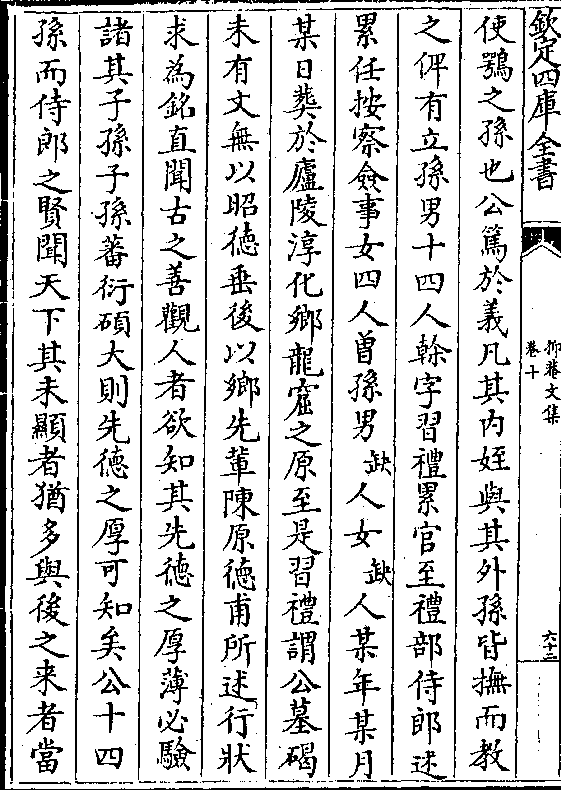 欽定四庫全書
抑菴文集
卷十
六十二
使鶚之孫也公篤於義凡其内姪與其外孫皆撫而教
之俾有立孫男十四人榦字習禮累官至禮部侍郎述
累任按察僉事女四人曽孫男缺人女缺人某年某月
某日葬於廬陵淳化鄉龍窟之原至是習禮謂公墓碣
未有文無以昭徳垂後以鄉先軰陳原徳甫所述行狀
求為銘直聞古之善觀人者欲知其先徳之厚薄必驗
諸其子孫子孫蕃衍碩大則先徳之厚可知矣公十四
孫而侍郎之賢聞天下其未顯者猶多與後之来者當